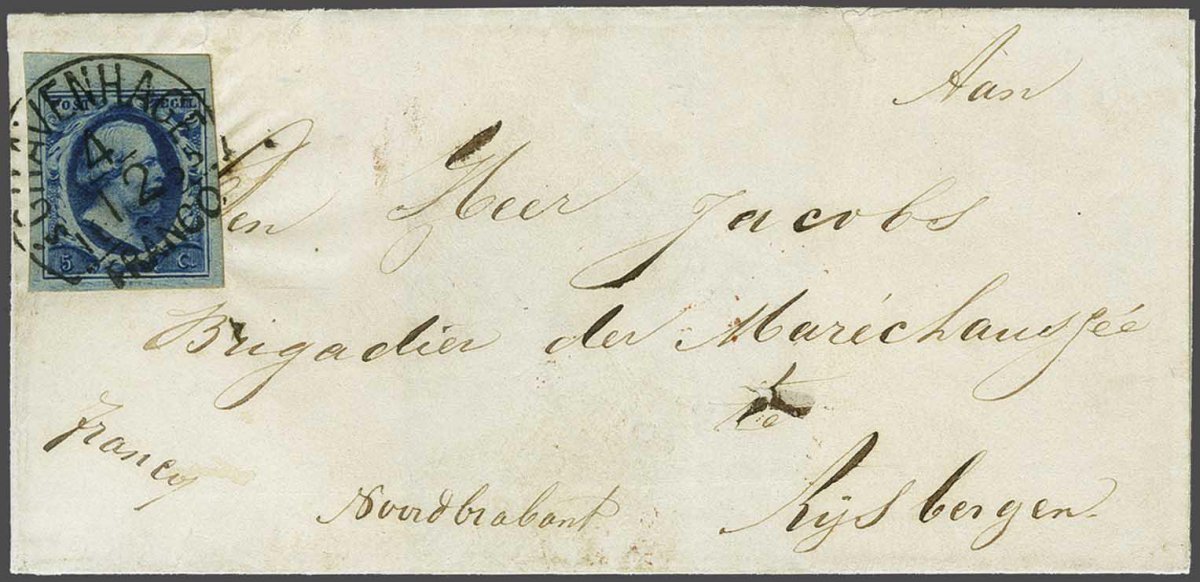 Aan
Den Heer Jacobs
Brigadier der Maréchaussée
te
Rijsbergen
Noordbrabant
franco
POST ZEGEL
5 C.
'S GRAVENHAGE
4
12
FRANCO